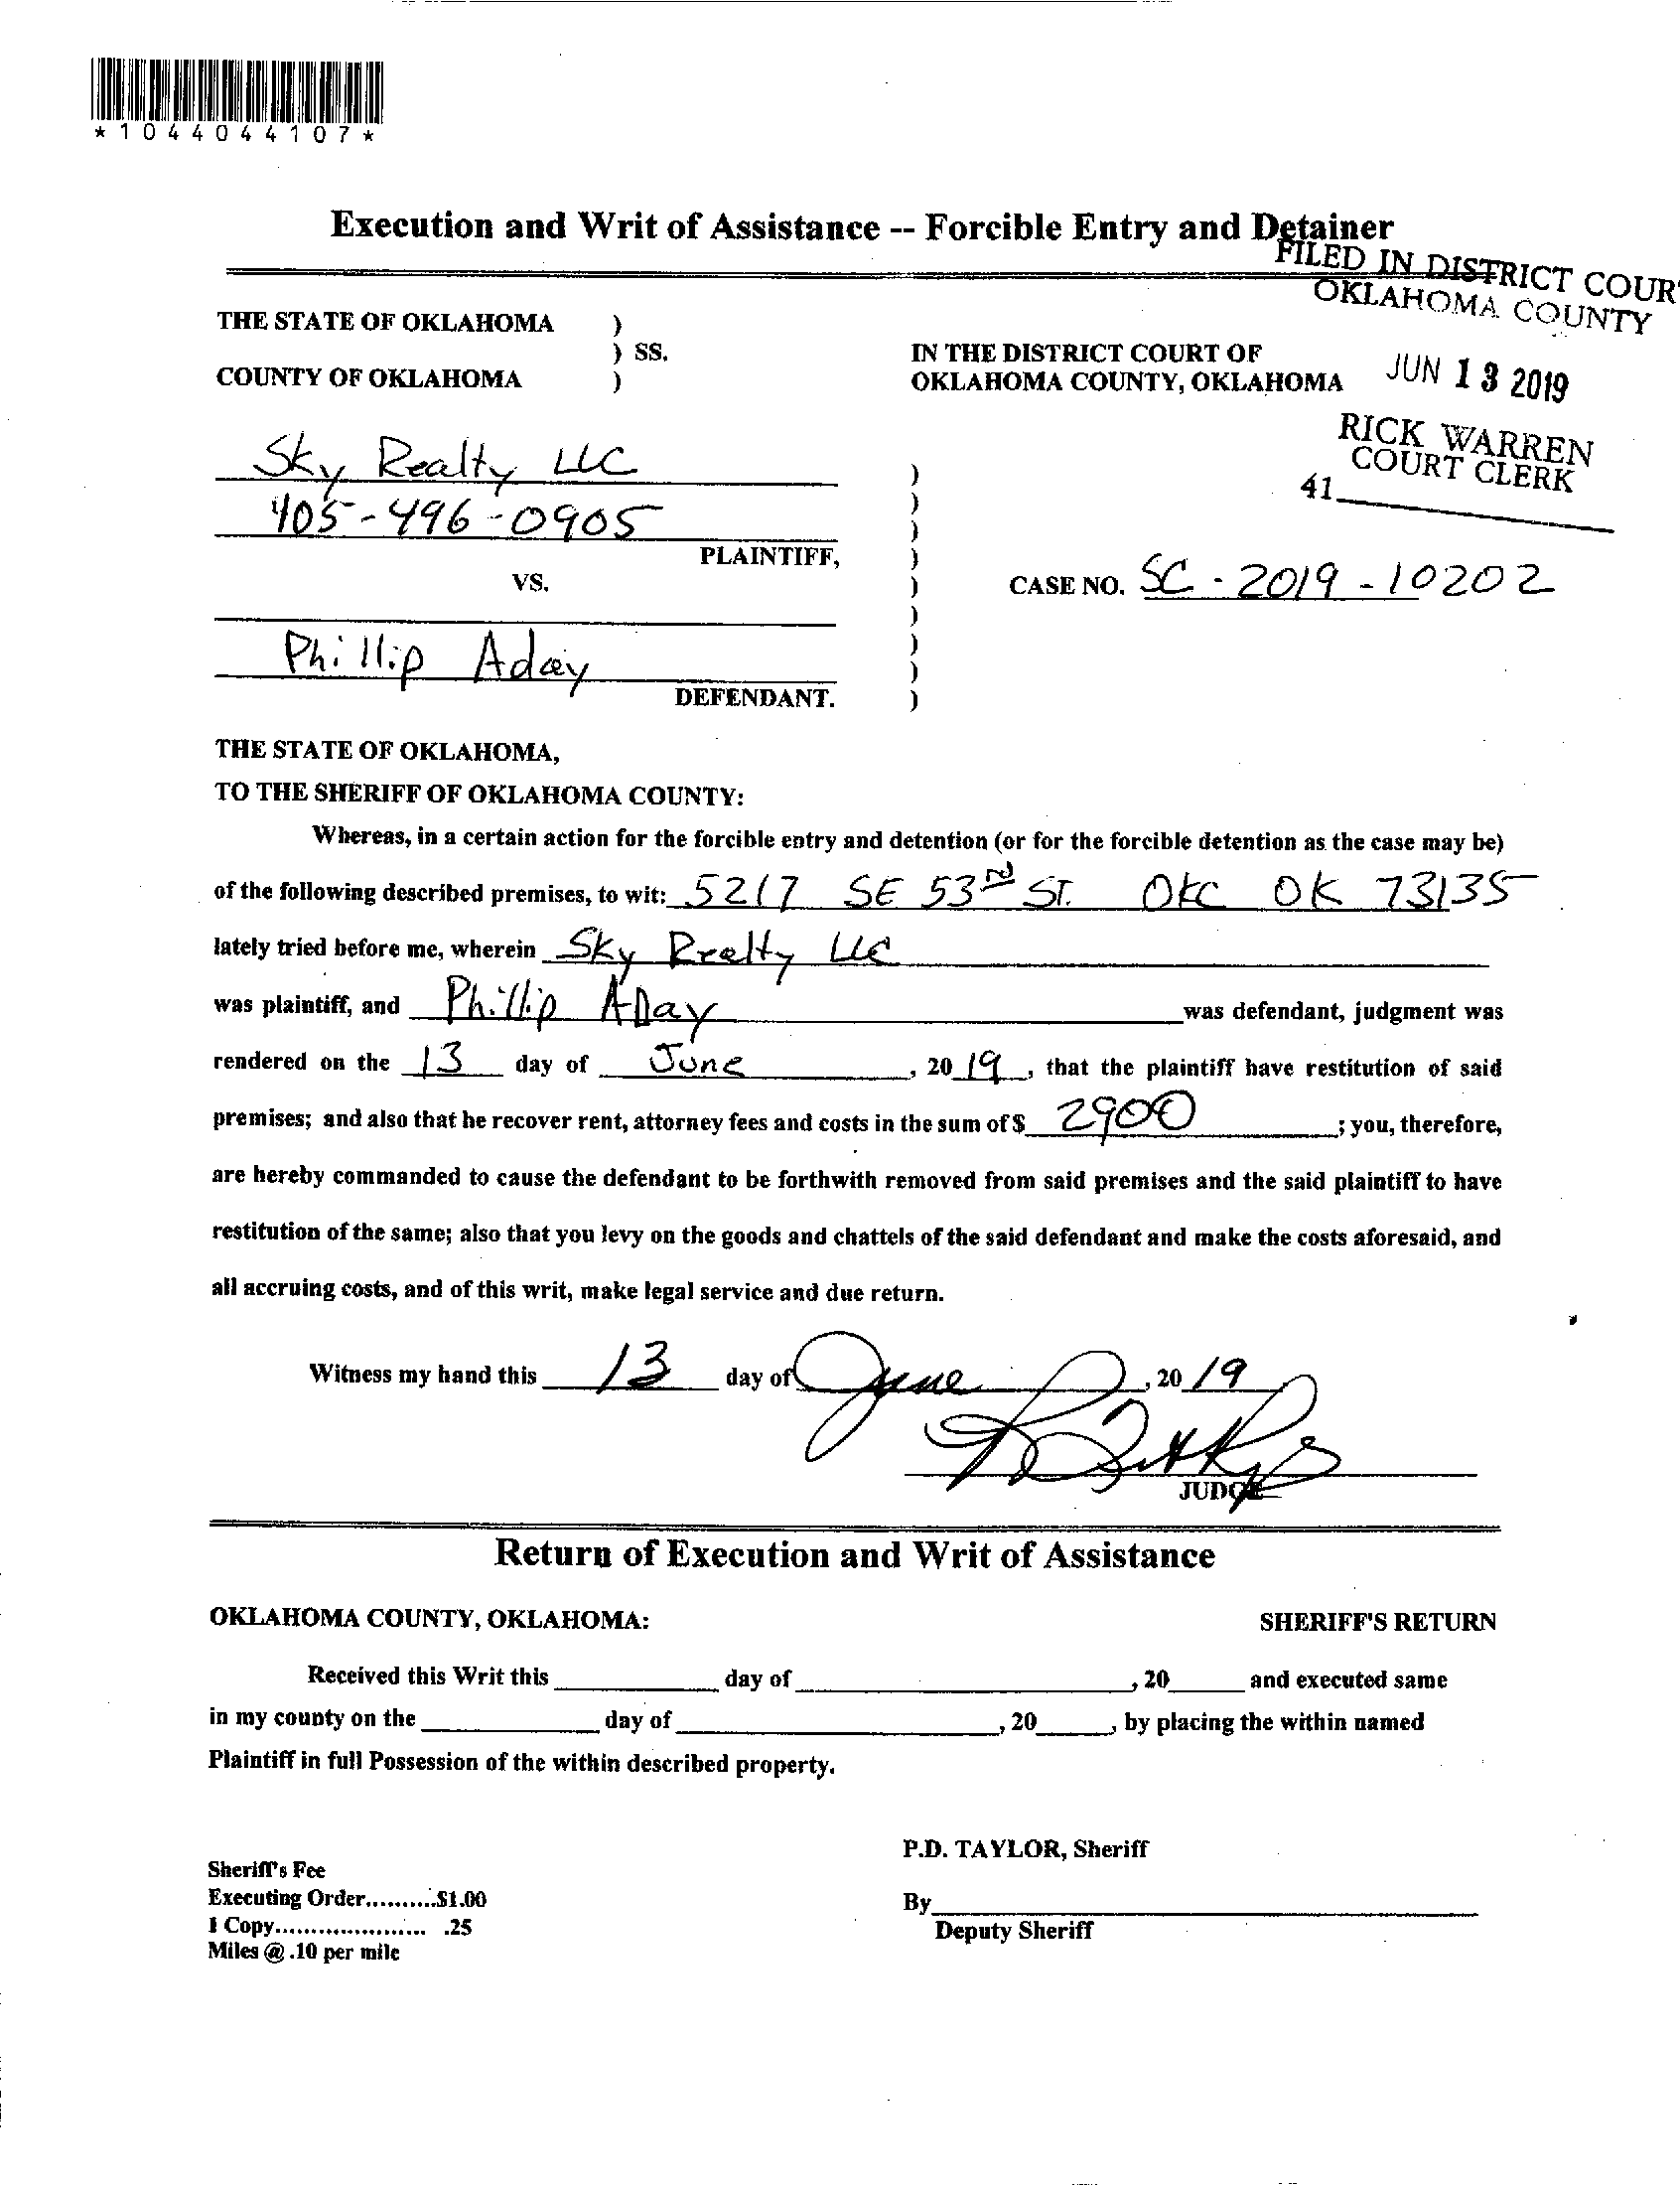 *1044044107*
Execution and Writ of Assistance -- Forcible Entry and Detainer
FILED IN DISTRICT COUR
OKLAHOMA COUNTY
THE STATE OF OKLAHOMA )
) SS.
COUNTY OF OKLAHOMA )
IN THE DISTRICT COURT OF
OKLAHOMA COUNTY, OKLAHOMA
JUN 13 2019
RICK WARREN
COURT CLERK
41
Sky Realty LLC )
405-496-0905 )
)
PLAINTIFF, )
VS. ) CASE NO. SC - 2019 - 10202
)
Phillip Aday )
)
DEFENDANT. )
THE STATE OF OKLAHOMA,
TO THE SHERIFF OF OKLAHOMA COUNTY:
Whereas, in a certain action for the forcible entry and detention (or for the forcible detention as the case may be)
of the following described premises, to wit: 5217 SE 53rd ST. OKC OK 73135
lately tried before me, wherein Sky Realty LLC
was plaintiff, and Phillip ADay was defendant, judgment was
rendered on the 13 day of June, 2019, that the plaintiff have restitution of said
premises; and also that he recover rent, attorney fees and costs in the sum of $ 2900; you, therefore,
are hereby commanded to cause the defendant to be forthwith removed from said premises and the said plaintiff to have
restitution of the same; also that you levy on the goods and chattels of the said defendant and make the costs aforesaid, and
all accruing costs, and of this writ, make legal service and due return.
Witness my hand this 13 day of June, 2019
JUDGE
Return of Execution and Writ of Assistance
OKLAHOMA COUNTY, OKLAHOMA: SHERIFF'S RETURN
Received this Writ this ______ day of ______, 20____ and executed same
in my county on the ______ day of ______, 20____, by placing the within named
Plaintiff in full Possession of the within described property.
P.D. TAYLOR, Sheriff
Sheriff's Fee
Executing Order..........$1.00
1 Copy..................... .25
Miles @ .10 per mile
By______
Deputy Sheriff